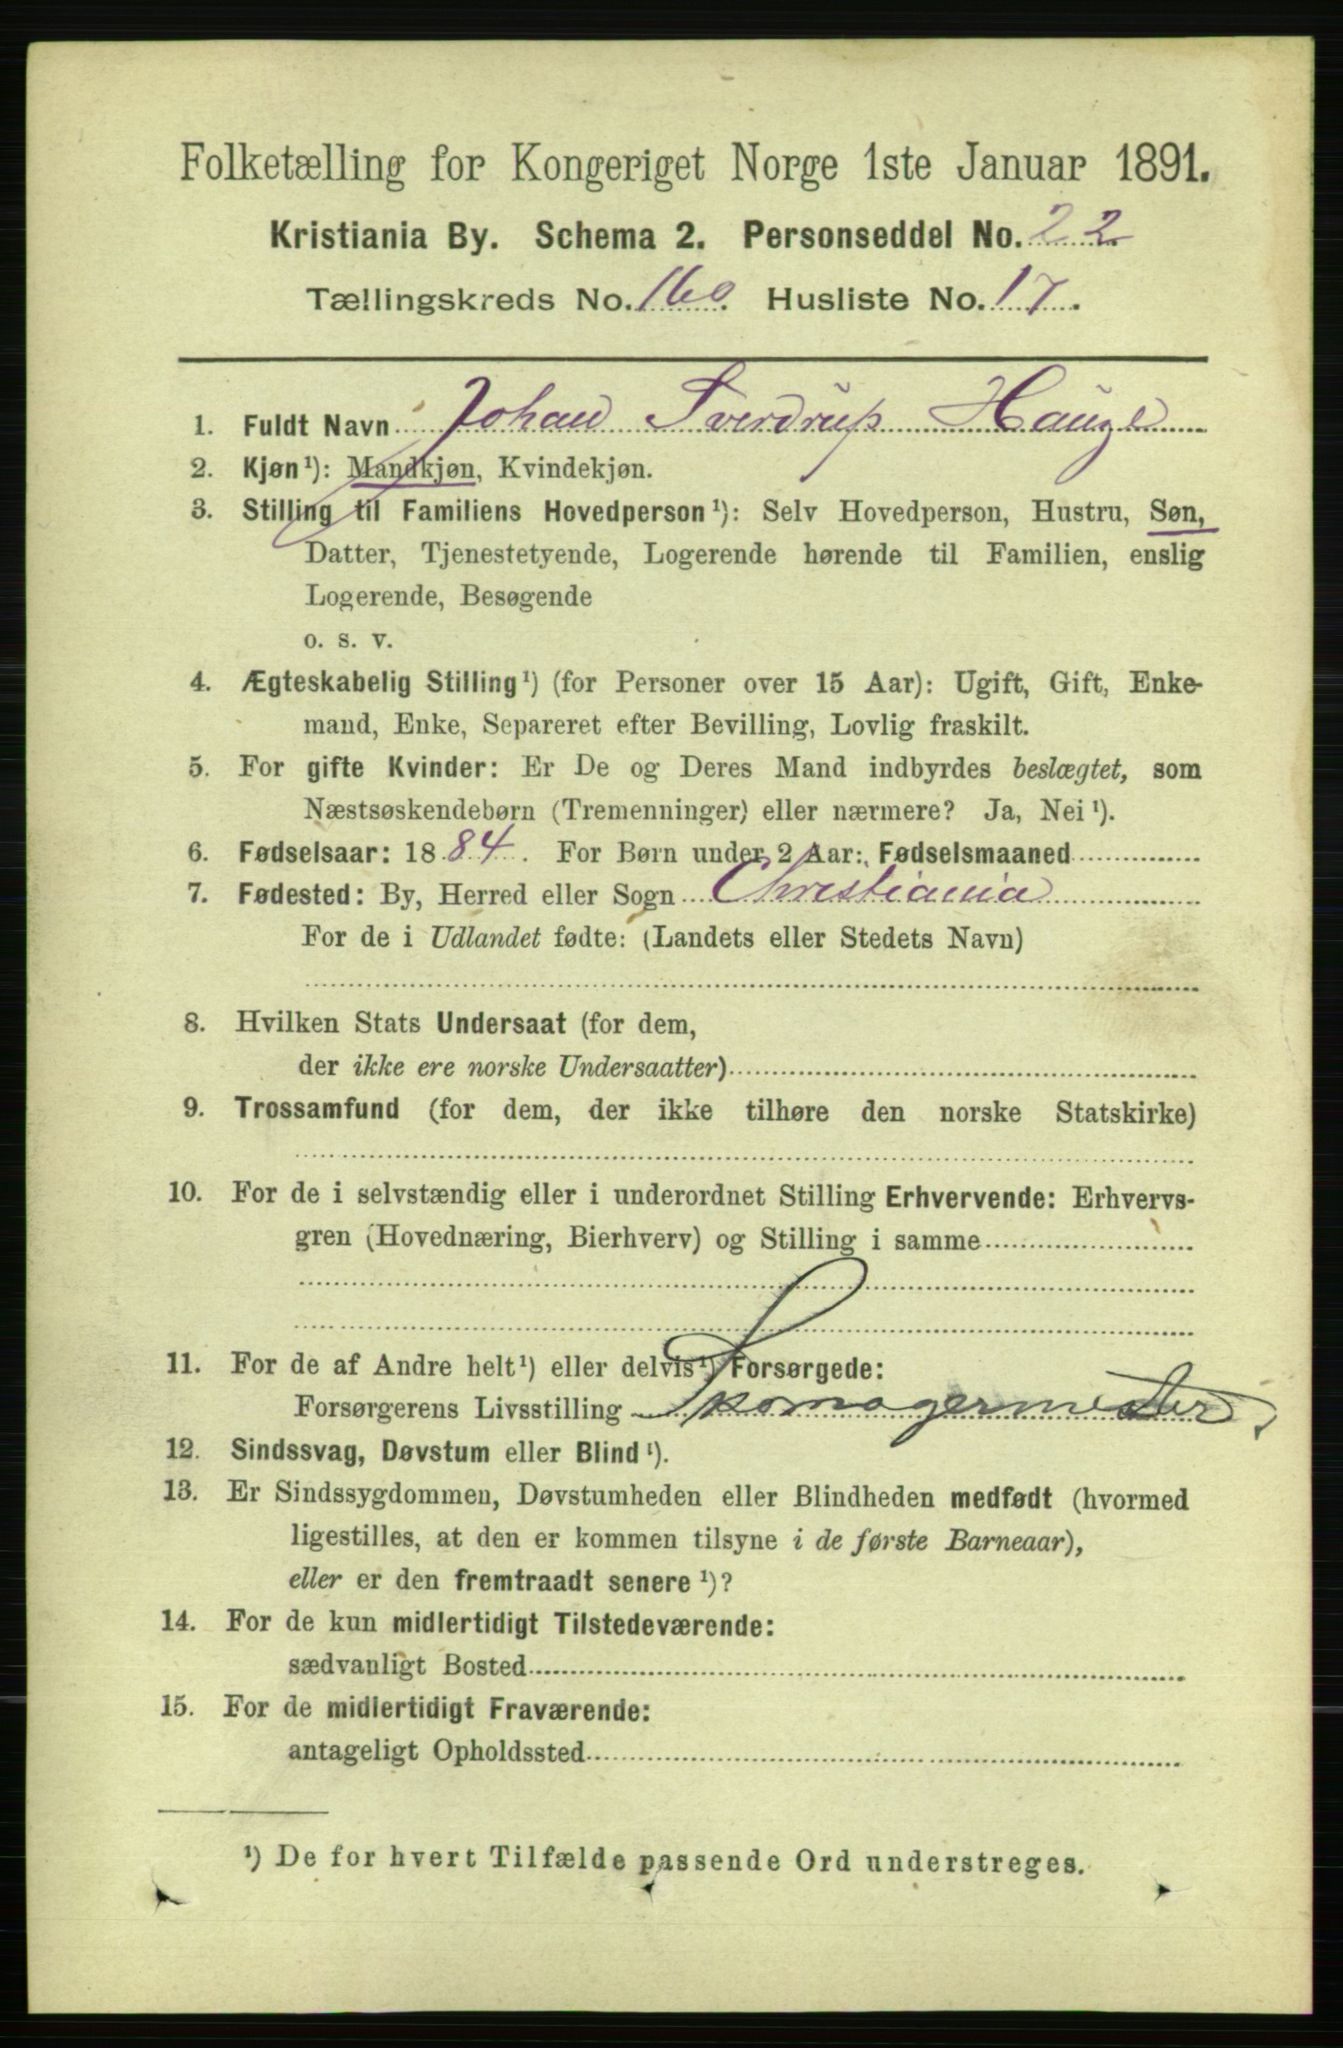 Folketælling for Kongeriget Norge 1ste Januar 1891.
Kristiania By. Schema 2. Personseddel No. 22
Tællingskreds No. 160. Husliste No. 17.
1. Fuldt Navn Johan Sverdrup Hauge
2. Kjøn¹): Mandkjøn, Kvindekjøn.
3. Stilling til Familiens Hovedperson¹): Selv Hovedperson, Hustru, Søn,
Datter, Tjenestetyende, Logerende hørende til Familien, enslig
Logerende, Besøgende
o. s. v.
4. Ægteskabelig Stilling¹) (for Personer over 15 Aar): Ugift, Gift, Enke-
mand, Enke, Separeret efter Bevilling, Lovlig fraskilt.
5. For gifte Kvinder: Er De og Deres Mand indbyrdes beslægtet, som
Næstsøskendebørn (Tremenninger) eller nærmere? Ja, Nei¹).
6. Fødselsaar: 1884. For Børn under 2 Aar: Fødselsmaaned
7. Fødested: By, Herred eller Sogn Christiania
For de i Udlandet fødte: (Landets eller Stedets Navn)
8. Hvilken Stats Undersaat (for dem,
der ikke ere norske Undersaatter)
9. Trossamfund (for dem, der ikke tilhøre den norske Statskirke)
10. For de i selvstændig eller i underordnet Stilling Erhvervende: Erhvervs-
gren (Hovednæring, Bierhverv) og Stilling i samme
11. For de af Andre helt¹) eller delvis¹) Forsørgede:
Forsørgerens Livsstilling Skomagermester
12. Sindssvag, Døvstum eller Blind¹).
13. Er Sindssygdommen, Døvstumheden eller Blindheden medfødt (hvormed
ligestilles, at den er kommen tilsyne i de første Barneaar),
eller er den fremtraadt senere¹)?
14. For de kun midlertidigt Tilstedeværende:
sædvanligt Bosted
15. For de midlertidigt Fraværende:
antageligt Opholdssted
¹) De for hvert Tilfælde passende Ord understreges.